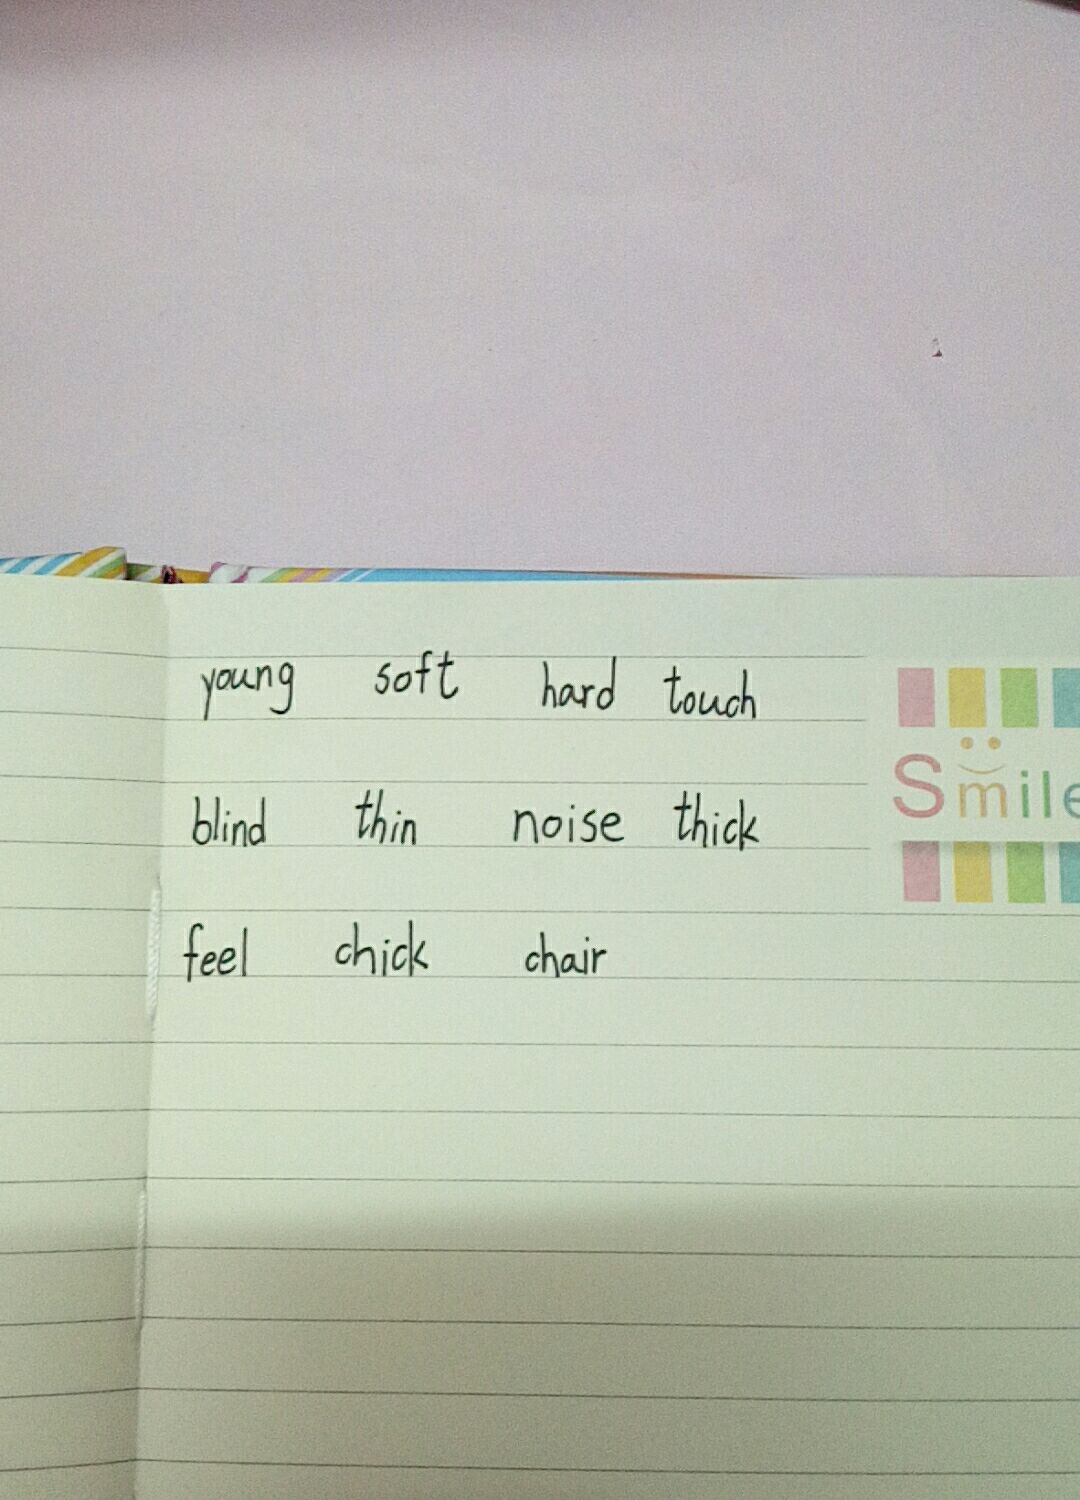 young soft hard touch
Smile
blind thin noise thick
feel chick chair